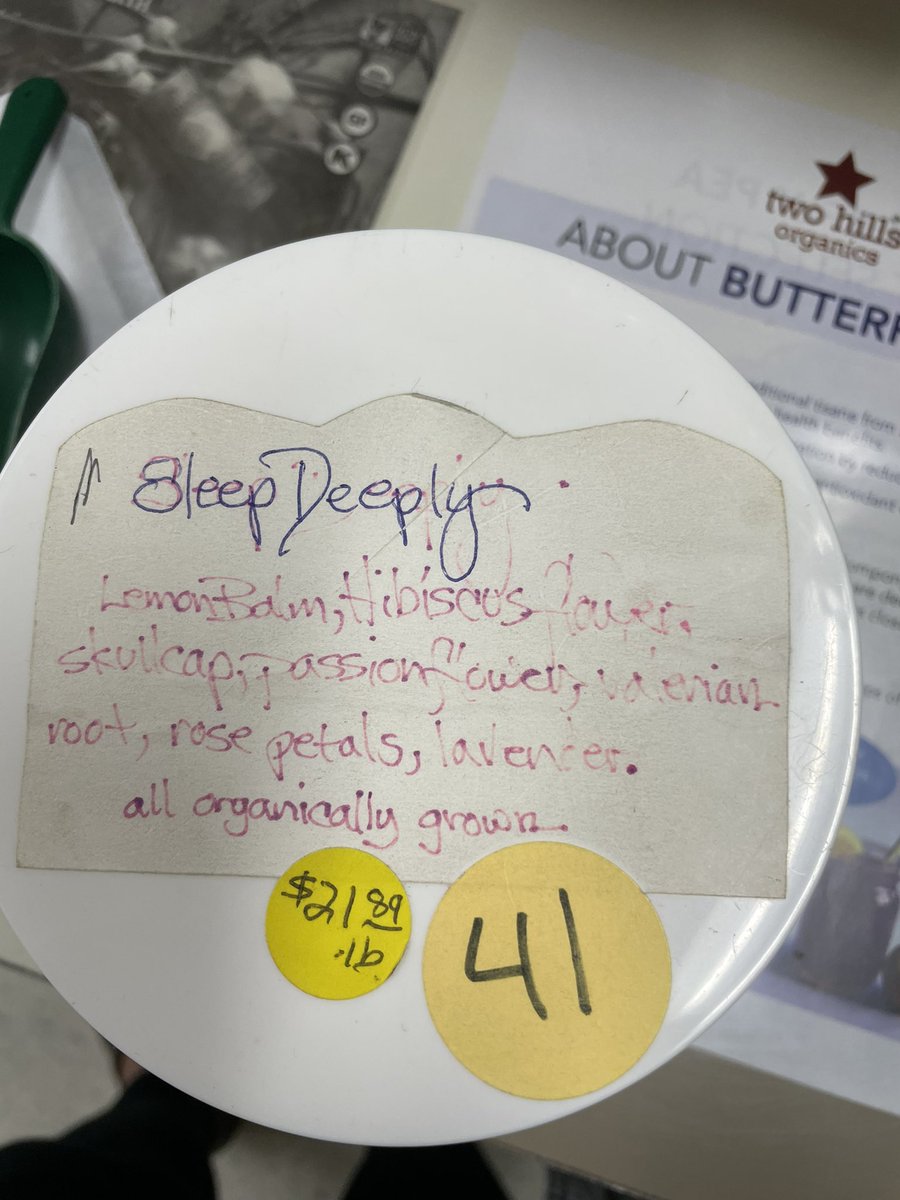 two hills
organics
ABOUT BUTTERF
Sleep Deeply
Lemon Balm, Hibiscus flower.
skullcap, passionflower, valerian
root, rose petals, lavender.
all organically grown
$21 89
lb
41